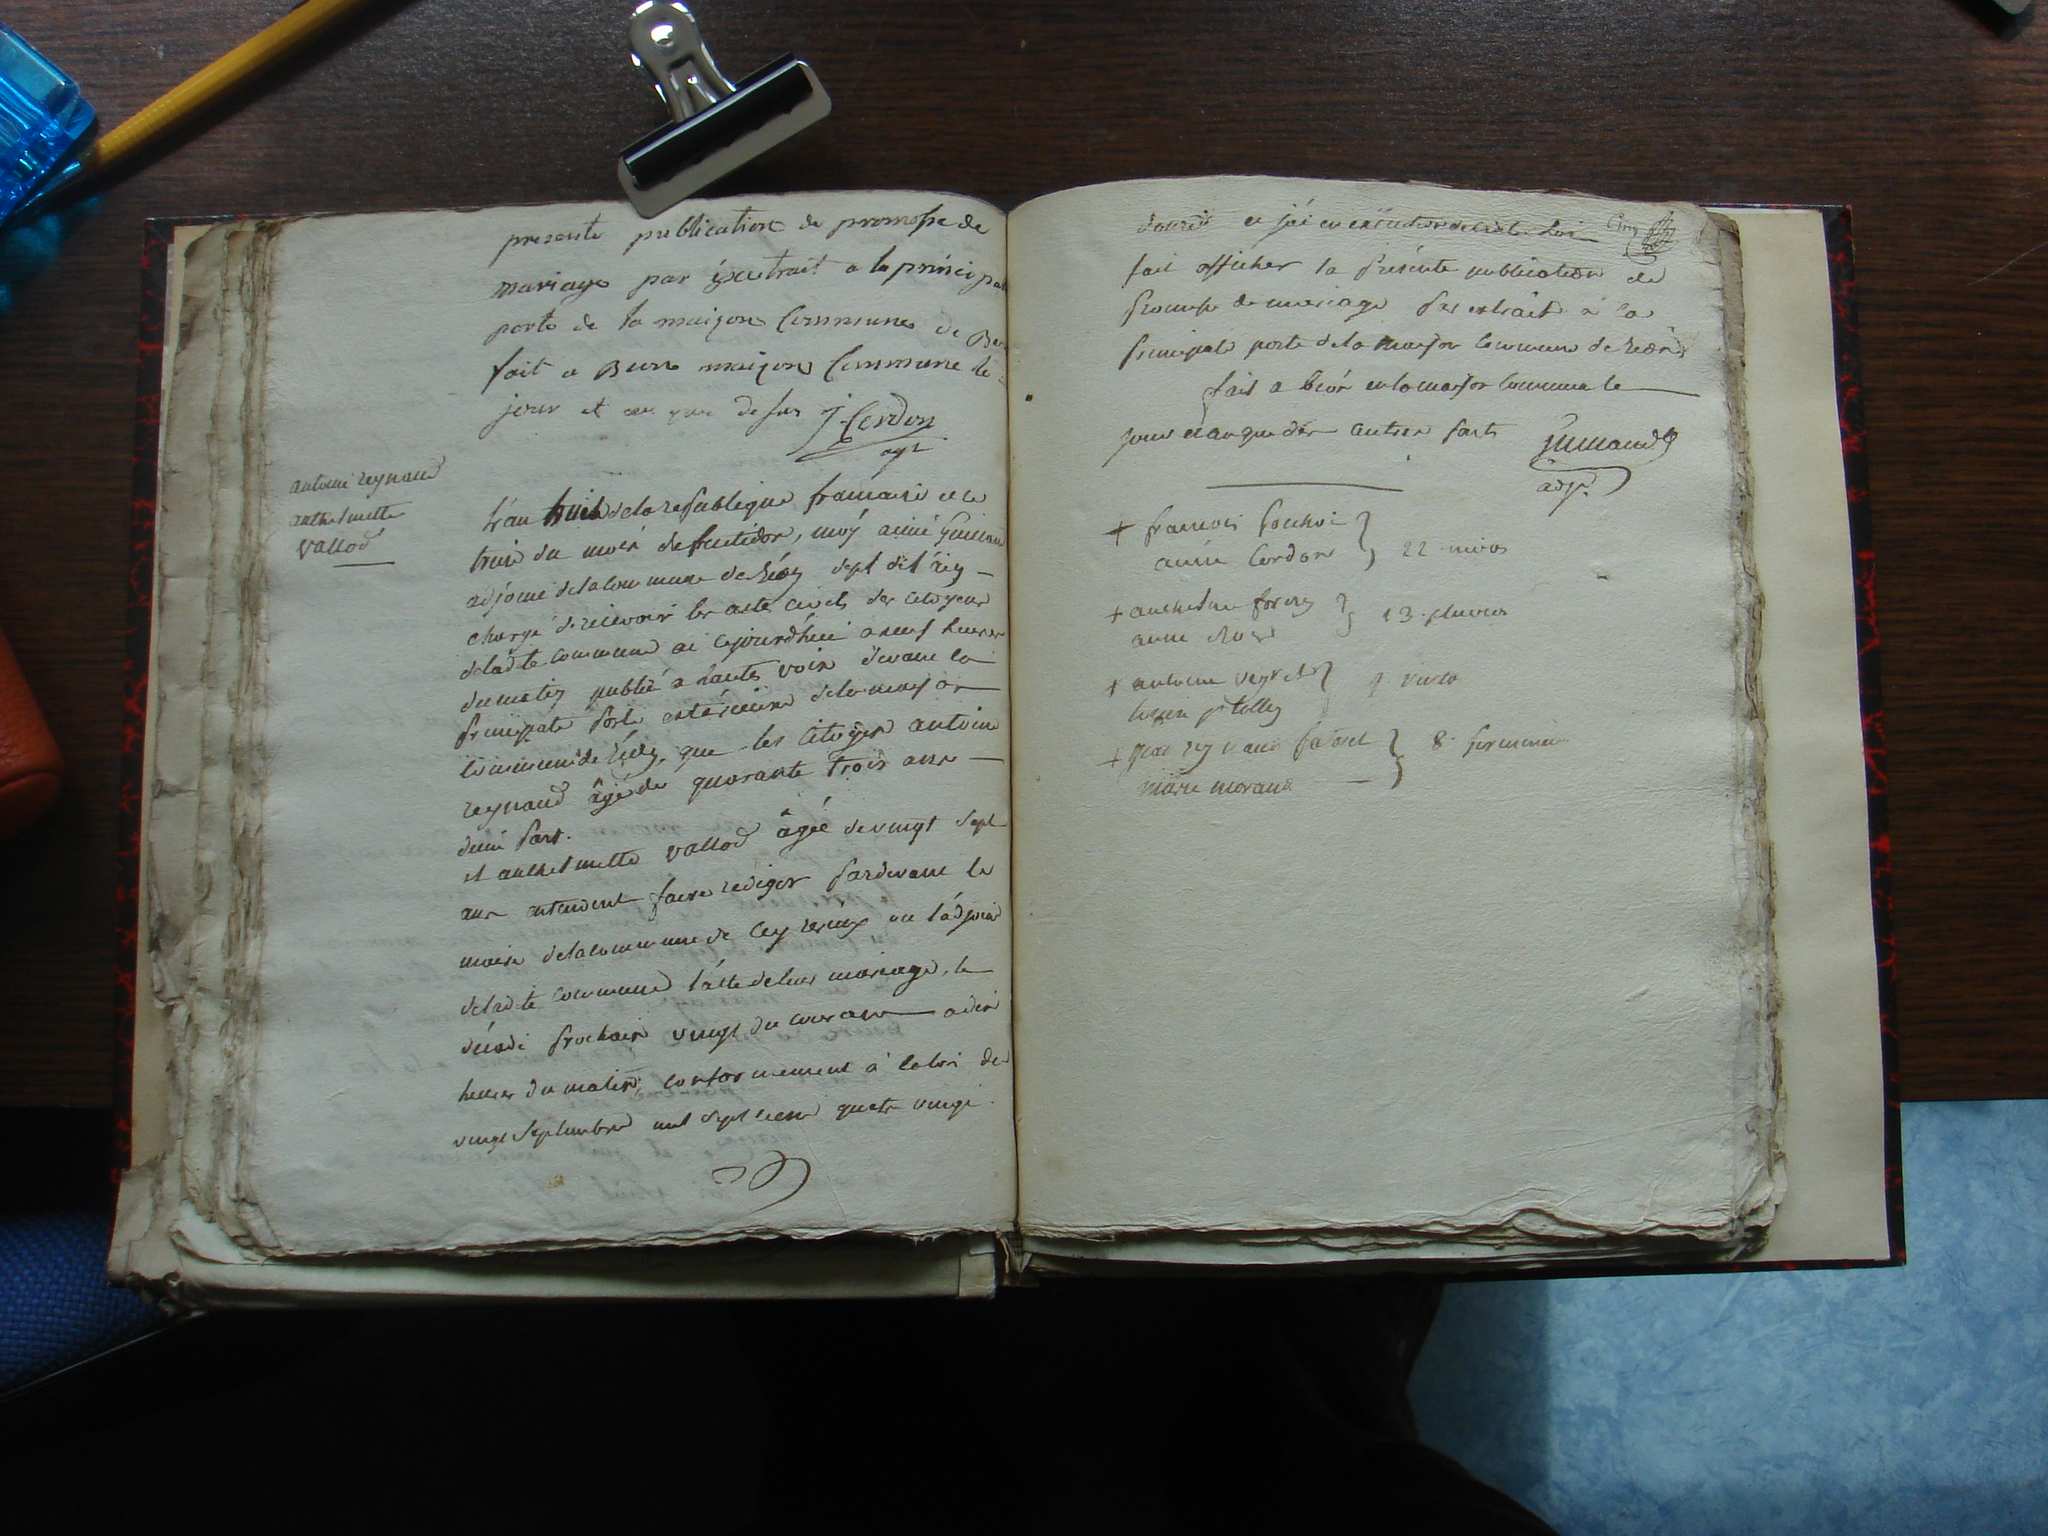 presente publication de promesse de
mariage par extrait a la principal
porte de la maizon Commune de Beon
fait a Beon maizon Commune le
jour et an que dessus J. Cerdon
agt
antoine reynaud
anthelmette
vallod
L'an huit de la republique francaise et le
treize du mois de fructidor, moy aimé Guilland
adjoint de la commune de
chargé de recevoir les actes civils des citoyens
de ladite commune ai cejourdhui a neuf heures
du matin publié a hautes voix devant la
principale porte extérieure de la maison
commune de que les citoyen antoine
reynaud âgé de quarante trois ans
dune part.
et anthelmette vallod âgée de vingt sept
ans entendent faire rediger pardevant le
maire de la commune de Ceyzerieux ou l'adjoint
de ladite commune l'acte de leur mariage, le
décadi prochain vingt du courant a dix
heures du matin, conformement à la loi de
vingt septembre mil sept cens quatre vingt
douze et j'ai en exécution de cette loi
fait afficher la présente publication de
promesse de mariage par extrait à la
principale porte de la maison commune de béon
fait a béon en la maison commune le
jour et an que des autres parts Guilland
adjt.
+ francois
anne Cerdon } 22 nivos
+ anthelme
anne } 13 pluvios
+ antoine veyret } 9 vento
+ reynaud
marie morand } 8 germinal